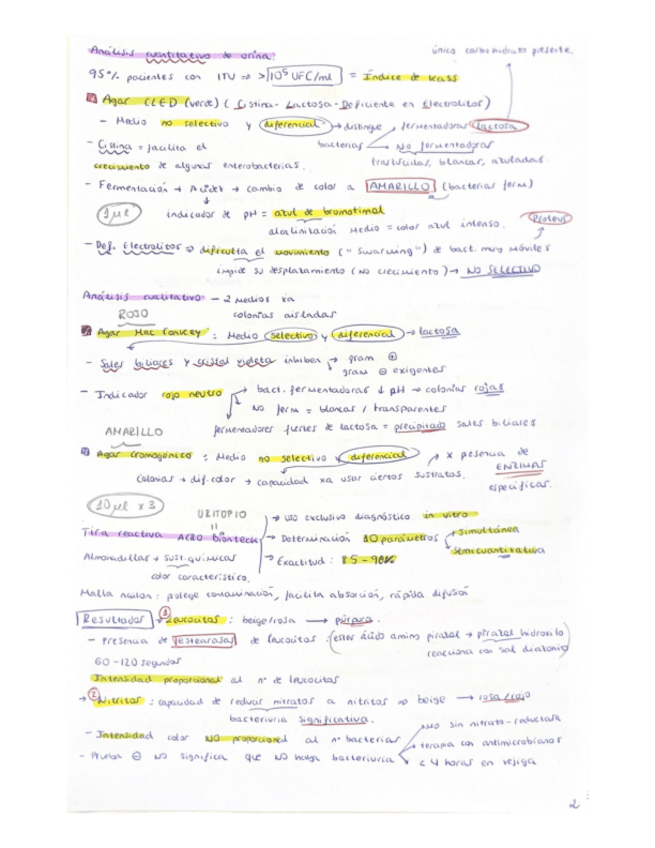 Análisis cuantitativo de orina:
único carbohidrato presente
95% pacientes con ITU => >10⁵ UFC/ml = Índice de Kass
Agar CLED (verde) (Cistina-Lactosa-Deficiente en Electrolitos)
- Medio no selectivo y diferencial → distingue bacterias
fermentadoras lactosa
NO fermentadoras
traslúcidas, blancas, azuladas
- Cistina = facilita el
crecimiento de algunas enterobacterias.
- Fermentación → Acidez → cambio de color a AMARILLO (bacterias ferm)
1 µl
indicador de pH = azul de bromotimol
alcalinización medio = color azul intenso.
Proteus
- Def. Electrolitos => dificulta el movimiento ("swarming") de bact. muy móviles
impide su desplazamiento (NO crecimiento) → NO SELECTIVO
Análisis cualitativo - 2 medios xa
colonias aisladas
ROJO
Agar Mac Conkey : Medio selectivo y diferencial → lactosa
- Sales biliares y cristal violeta inhiben → gram ⊕
gram ⊖ exigentes
- Indicador rojo neutro
bact. fermentadoras ↓ pH → colonias rojas
NO ferm = blancas / transparentes
fermentadores fuertes de lactosa = precipitado sales biliares
AMARILLO
Agar Cromogénico : Medio no selectivo y diferencial
x presencia de
ENZIMAS
específicas.
Colonias ≠ dif. color → capacidad xa usar ciertos sustratos.
10 µl x 3
URITOP10
Tira reactiva ACRO biontech
→ uso exclusivo diagnóstico in vitro
→ Determinación 10 parámetros
simultánea
semicuantitativa
→ Exactitud : 85-98%
Almohadillas + sust. químicas
color característico.
Malla nailon : protege contaminación, facilita absorción, rápida difusión
Resultados → 1 Leucocitos : beige/rosa → púrpura.
- Presencia de esterasas de leucocitos : (ester ácido amino pirazol → pirazol hidroxilo
reacciona con sal diazonio)
60-120 segundos
Intensidad proporcional al nº de leucocitos
→ 2 Nitritos : capacidad de reducir nitratos a nitritos => beige → rosa/rojo
bacteriuria significativa.
- Intensidad color NO proporcional al nº bacterias
- Prueba ⊖ NO significa que NO haya bacteriuria
sin nitrato-reductasa
terapia con antimicrobianos
< 4 horas en vejiga
2